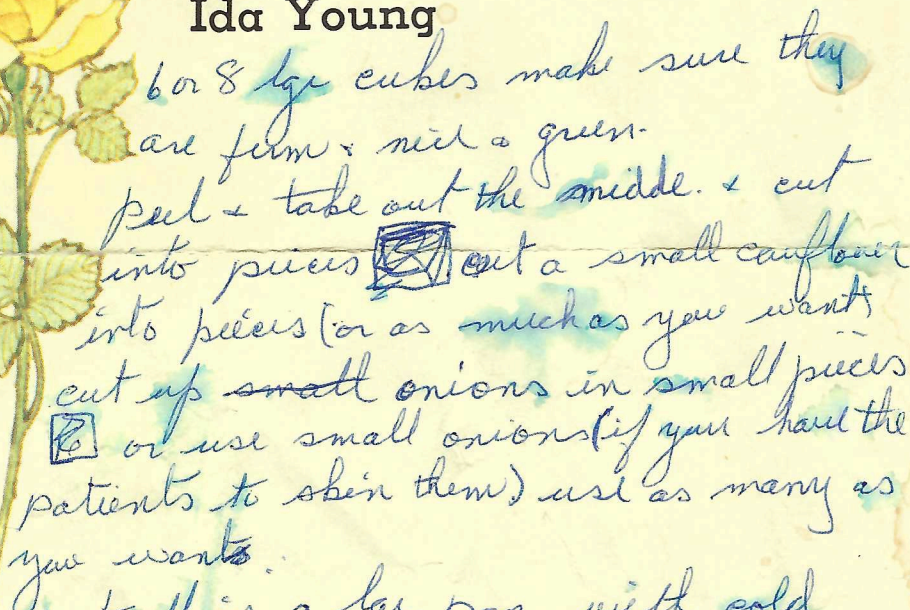 Ida Young
6 or 8 lge cukes make sure they
are firm & nice & green.
peel & take out the midde. & cut
into pieces cut a small cauflower
into pieces (or as much as you want)
cut up small onions in small pieces
or use small onions (if you have the
patients to skin them) use as many as
you want.
in a lge pan with cold